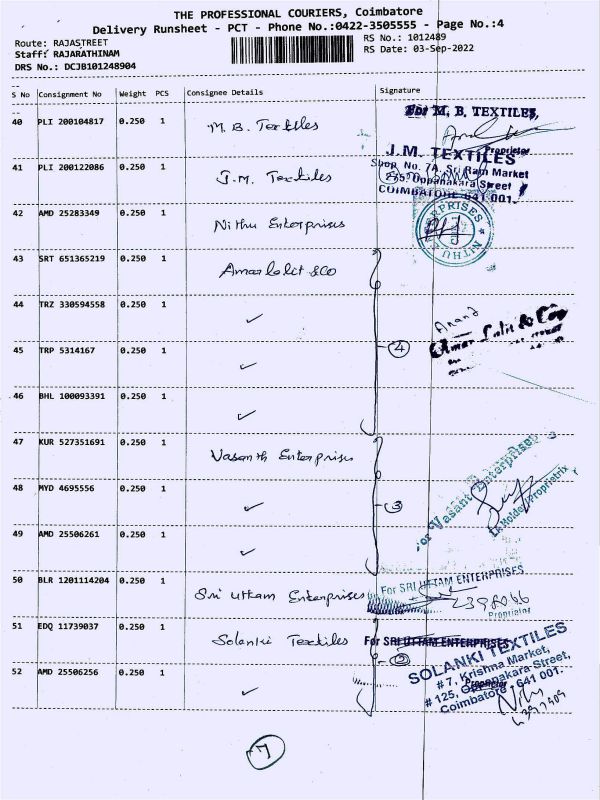 THE PROFESSIONAL COURIERS, Coimbatore
Delivery Runsheet - PCT - Phone No.:0422-3505555 - Page No.:4
Route: RAJASTREET
RS No.: 1012489
Staff: RAJARATHINAM
RS Date: 03-Sep-2022
DRS No.: DCJB101248904
S No Consignment No Weight PCS Consignee Details Signature
40 PLI 200104817 0.250 1 M.B. Textiles
For M. B. TEXTILES,
Proprietor
41 PLI 200122086 0.250 1 J.M. Textiles
J.M. TEXTILES
Shop No. 7A, Sri Ram Market
235, Oppanakara Street
COIMBATORE-641 001.
42 AMD 25283349 0.250 1 Nithu Enterprises
NITHU
43 SRT 651365219 0.250 1 Amar Lalit & Co
44 TRZ 330594558 0.250 1 ✓
Anand
Amar Lalit & Co
45 TRP 5314167 0.250 1 ✓
4
46 BHL 100093391 0.250 1 ✓
47 KUR 527351691 0.250 1 Vasanth Enterprises
For Vasant Enterprises
48 MYD 4695556 0.250 1 ✓
3
49 AMD 25506261 0.250 1 ✓
50 BLR 1201114204 0.250 1 Sri Uttam Enterprises
For SRI UTTAM ENTERPRISES
Proprietor
51 EDQ 11739037 0.250 1 Solanki Textiles
For SRI UTTAM ENTERPRISES
2
SOLANKI TEXTILES
# 7, Krishna Market,
# 125, Oppanakara Street,
Coimbatore - 641 001.
Proprietor
52 AMD 25506256 0.250 1 ✓
7